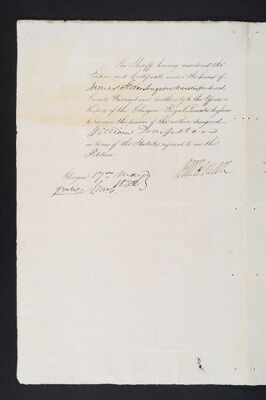 The Sheriff having considered the
Petition and Certificate under the hand of
James Steven Surgeon
Grants Warrant and Authority to the Officers &
Keepers of the Glasgow Royal Lunatic Asylum
to receive the person of the within designed
William
in terms of the Statutes referred to in the
Petition.
Glasgow 17th May
gratis